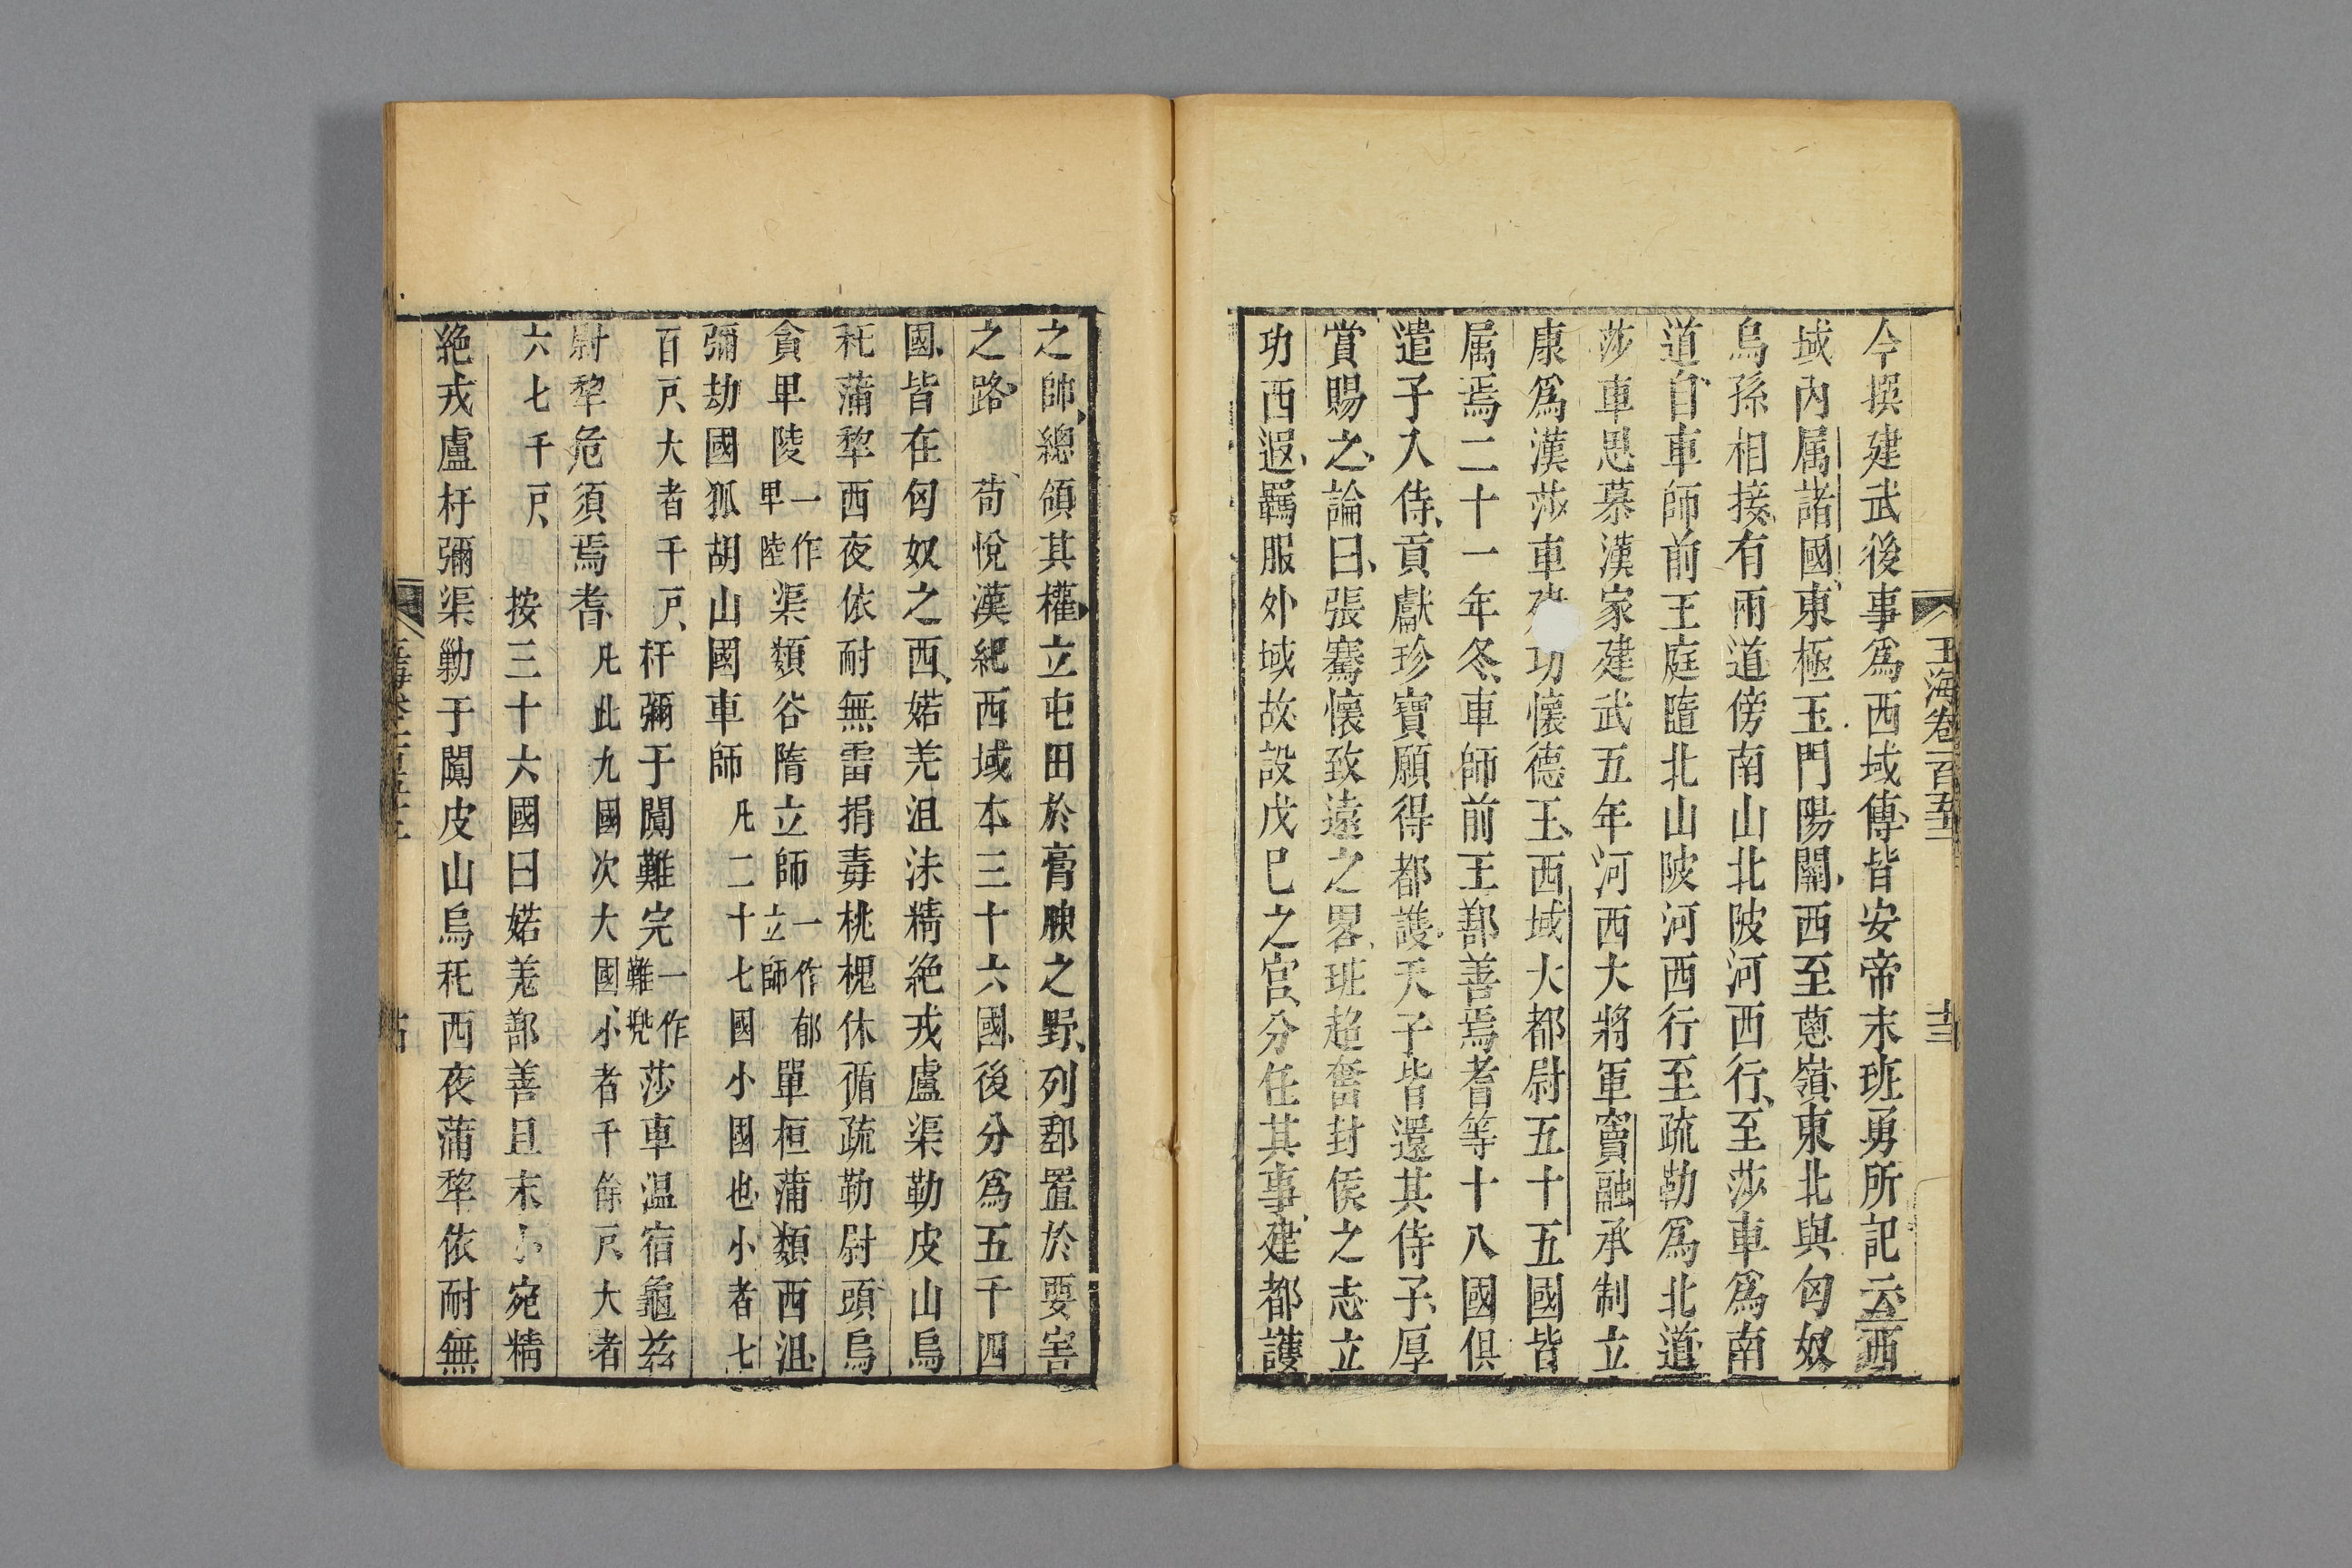 玉海卷一百五十二
十三
今撰建武後事爲西域傳皆安帝末班勇所記云西
域內属諸國東極玉門陽關西至蔥嶺東北與匈奴
烏孫相接有兩道傍南山北陂河西行至莎車爲南
道自車師前王庭隨北山陂河西行至疏勒爲北道
莎車思慕漢家建武五年河西大將軍竇融承制立
康爲漢莎車功懷德王西域大都尉五十五國皆
属焉二十一年冬車師前王鄯善焉耆等十八國俱
遣子入侍貢獻珍寶願得都護天子皆還其侍子厚
賞賜之論曰張騫懷致遠之畧班超奮封侯之志立
功西遐羈服外域故設戊巳之官分任其事建都護
之帥總領其權立屯田於膏腴之野列郵置於要害
之路 荀悅漢紀西域本三十六國後分爲五千四
國皆在匈奴之西婼羌沮沬精絶戎盧渠勒皮山烏
秅蒲犂西夜依耐無雷捐毒桃槐休循疏勒尉頭烏
貪𤰞陵一作𤰞陸渠類谷隋立師一作郁立師單桓蒲類西沮
彌劫國狐胡山國車師凡二十七國小國也小者七
百戸大者千戸杆彌于闐難完一作難兠莎車温宿龜兹
尉犂危須焉耆凡此九國次大國小者千餘戸大者
六七千戸 按三十六國曰婼羌鄯善且末小宛精
絶戎盧杅彌渠勒于闐皮山烏秅西夜蒲犂依耐無